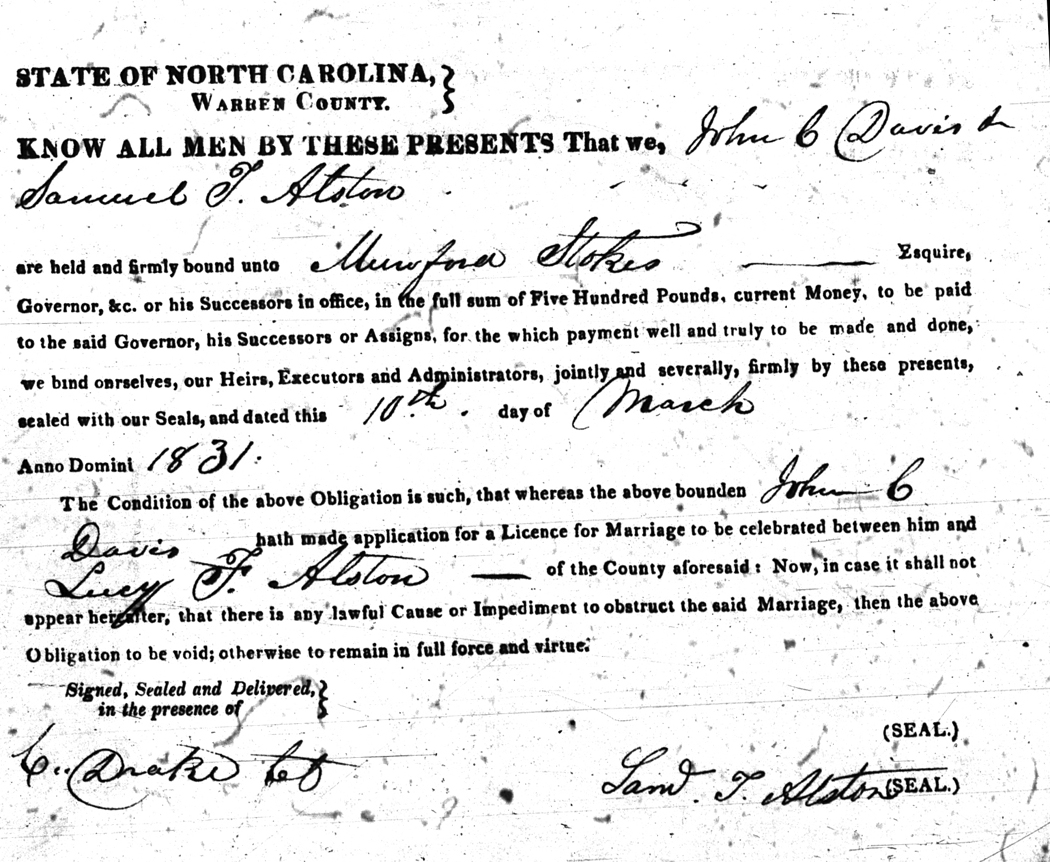 STATE OF NORTH CAROLINA,
WARREN COUNTY.
KNOW ALL MEN BY THESE PRESENTS That we, John C Davis &
Samuel T. Alston
are held and firmly bound unto Munford Stokes Esquire,
Governor, &c. or his Successors in office, in the full sum of Five Hundred Pounds, current Money, to be paid
to the said Governor, his Successors or Assigns, for the which payment well and truly to be made and done,
we bind onrselves, our Heirs, Executors and Administrators, jointly and severally, firmly by these presents,
sealed with our Seals, and dated this 10th. day of March
Anno Domini 1831.
The Condition of the above Obligation is such, that whereas the above bounden John C
Davis hath made application for a Licence for Marriage to be celebrated between him and
Lucy F. Alston of the County aforesaid: Now, in case it shall not
appear hereafter, that there is any lawful Cause or Impediment to obstruct the said Marriage, then the above
Obligation to be void; otherwise to remain in full force and virtue.
Signed, Sealed and Delivered,
in the presence of
(SEAL.)
C. Drake Saml. T. Alston (SEAL.)